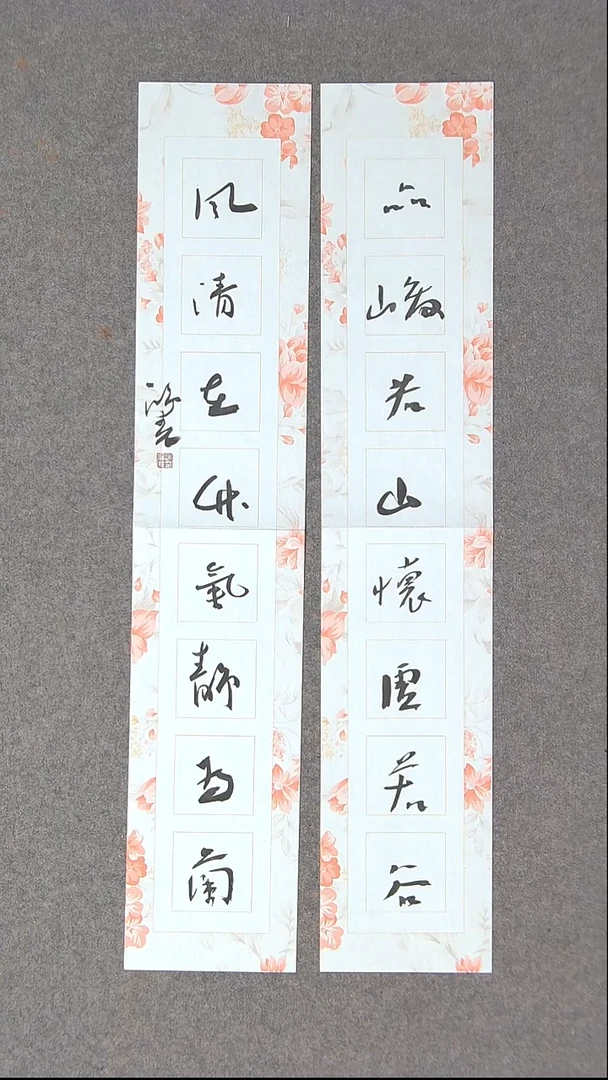 品峻若山懷虛若谷
風清在竹氣靜為蘭